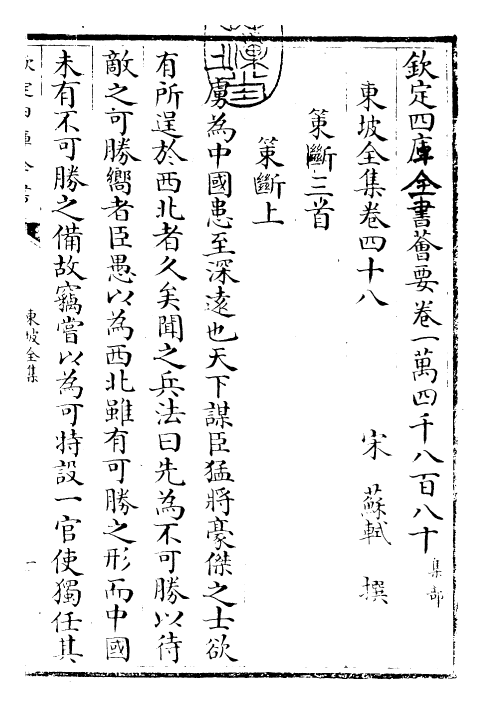 欽定四庫全書薈要卷一萬四千八百八十
集部
東坡全集卷四十八
宋 蘇軾 撰
策斷三首
策斷上
二虜為中國患至深遠也天下謀臣猛將豪傑之士欲
有所逞於西北者久矣聞之兵法曰先為不可勝以待
敵之可勝嚮者臣愚以為西北雖有可勝之形而中國
未有不可勝之備故竊嘗以為可特設一官使獨任其
欽定四庫全書
東坡全集
一